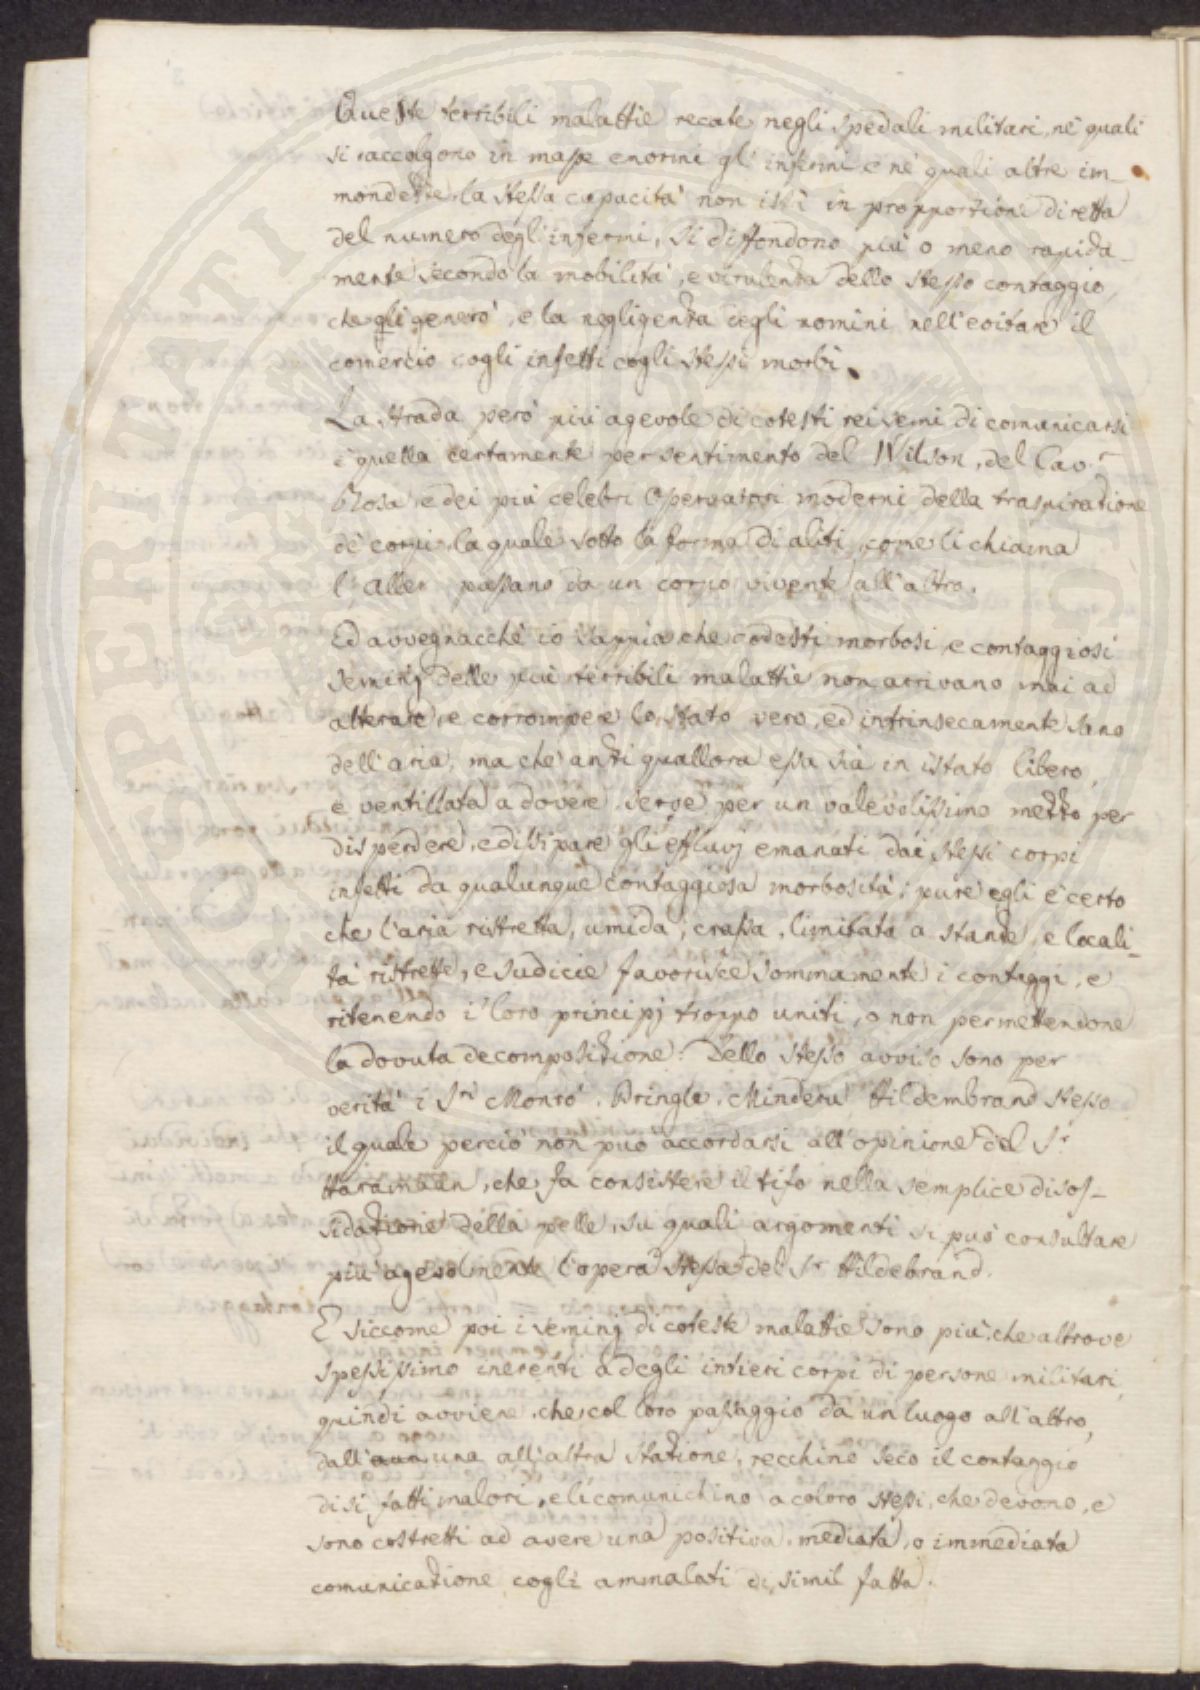 Queste terribili malattie recate negli spedali militari, ne' quali
si raccolgono in masse enormi gl' infermi e ne' quali altre im-
mondezze la stessa capacità non istì in propporzione diretta
del numero degl'infermi, si diffondono più o meno rapida-
mente secondo la mobilità, e virulenza dello stesso contaggio,
che gli generò, e la negligenza degli uomini nell'evitare il
comercio cogli infetti cogli stessi morbi.
La strada però più agevole di cotesti rei semi di comunicarsi
è quella certamente per sentimento del Wilson, del Cav.r
Rosa e dei più celebri Osservatori moderni della traspirazione
de' corpi, la quale sotto la forma di aliti, come li chiama
l' Aller passano da un corpo vivente all'altro.
Ed avvegnacchè io sappia che codesti morbosi, e contaggiosi
seminj delle più terribili malattie non arrivano mai ad
alterare, e corrompere lo stato vero, ed intrinsecamente sano
dell'aria, ma che anzi quallora essa sia in istato libero,
e ventillata a dovere serve per un valevolissimo mezzo per
disperdere, e dissipare gli effluvj emanati dai stessi corpi
infetti da qualunque contaggiosa morbosità; pure egli è certo
che l'aria ristretta, umida, crassa, limitata a stanze, e locali-
tà ristrette, e sudicie favorisce sommamente i contaggi, e
ritenendo i loro principj troppo uniti, o non permettendone
la dovuta decomposizione. Dello stesso avviso sono per
verità i S.ri Monrò, Pringle, Minderu Hildembrand stesso
il quale perciò non può accordarsi all'opinione del S.r
che fa consistere il tifo nella semplice disos-
sidazione della pelle, su quali argomenti si può consultare
più agevolmente l'opera stessa del S.r Hildebrand.
E siccome poi i seminj di coteste malattie sono più che altrove
spessissimo inerenti a degli intieri corpi di persone militari,
quindi avviene, che col loro passaggio da un luogo all'altro,
dall' una all'altra stazione, recchino seco il contaggio
di sì fatti malori, e li comunichino a coloro stessi, che devono, e
sono costretti ad avere una positiva, mediata, o immediata
comunicazione cogli ammalati di simil fatta.
COSPERITATI PVBLICAE